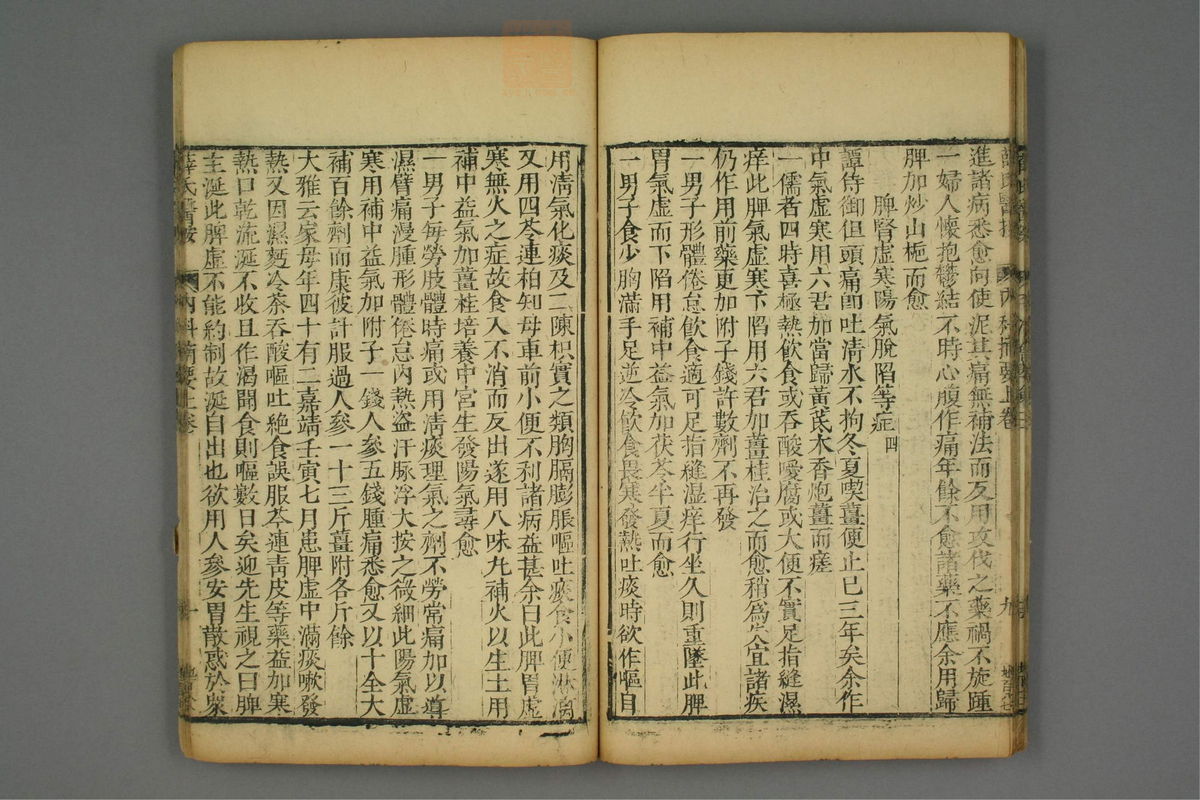 進諸病悉愈向使泥其痛無補法而反用攻伐之藥禍不旋踵
一婦人懷抱鬱結不時心腹作痛年餘不愈諸藥不應余用歸
脾加炒山梔而愈
脾腎虛寒陽氣脫陷等症四
譚侍御但頭痛即吐清水不拘冬夏喫薑便止已三年矣余作
中氣虛寒用六君加當歸黃芪木香炮薑而瘥
一儒者四時喜極熱飲食或吞酸噯腐或大便不實足指縫濕
痒此脾氣虛寒下陷用六君加薑桂治之而愈稍為失宜諸疾
仍作用前藥更加附子錢許數劑不再發
一男子形體倦怠飲食適可足指縫濕痒行坐久則重墜此脾
胃氣虛而下陷用補中益氣加茯苓半夏而愈
一男子食少胸滿手足逆冷飲食畏寒發熱吐痰時欲作嘔自
用清氣化痰及二陳枳實之類胸膈膨脹嘔吐痰食小便淋漓
又用四苓連柏知母車前小便不利諸病益甚余曰此脾胃虛
寒無火之症故食入不消而反出遂用八味丸補火以生土用
補中益氣加薑桂培養中宮生發陽氣尋愈
一男子每勞肢體時痛或用清痰理氣之劑不勞常痛加以導
濕臂痛漫腫形體倦怠內熱盜汗脉浮大按之微細此陽氣虛
寒用補中益氣加附子一錢人參五錢腫痛悉愈又以十全大
補百餘劑而康彼計服過人參一十三斤薑附各斤餘
大雅云家母年四十有二嘉靖壬寅七月患脾虛中滿痰嗽發
熱又因濕麪冷茶吞酸嘔吐絕食誤服芩連青皮等藥益加寒
熱口乾流涎不收且作渴聞食則嘔數日矣迎先生視之曰脾
主涎此脾虛不能約制故涎自出也欲用人參安胃散惑於衆
薛氏醫按 內科摘要上卷